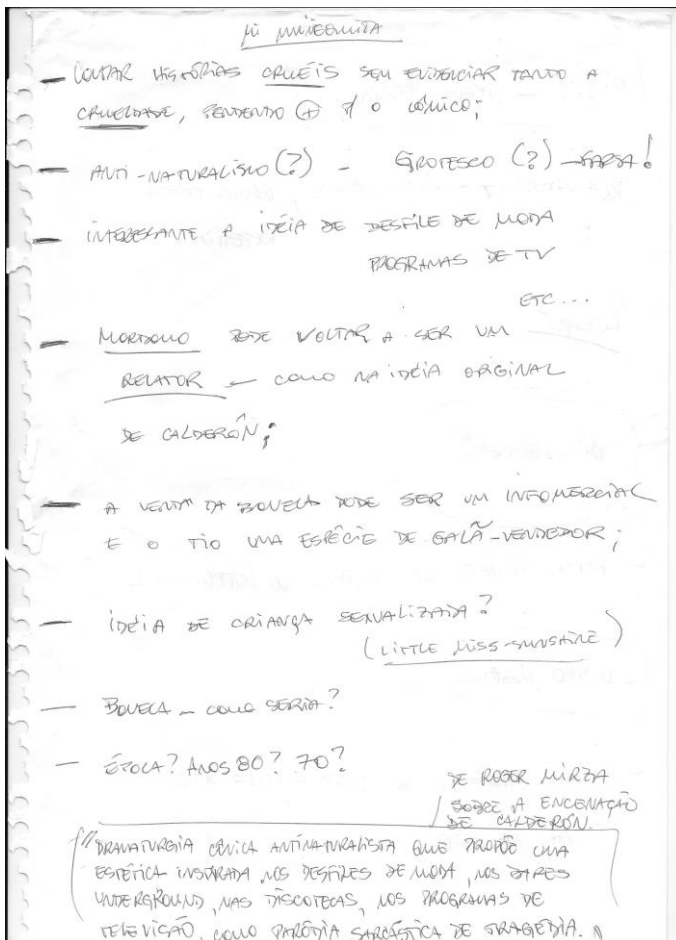 mi muñequita
— CONTAR HISTÓRIAS CRUÉIS SEM EVIDENCIAR TANTO A
CRUELDADE, PENDENDO ⊕ p/ O CÔMICO;
— ANTI-NATURALISMO (?) – GROTESCO (?) – FARSA!
— INTERESSANTE A IDÉIA DE DESFILE DE MODA
PROGRAMAS DE TV
ETC...
— MORDOMO PODE VOLTAR A SER UM
RELATOR – COMO NA IDÉIA ORIGINAL
DE CALDERÓN;
— A VENDA DA BONECA PODE SER UM INFOMERCIAL
E O TIO UMA ESPÉCIE DE GALÃ-VENDEDOR;
— IDÉIA DE CRIANÇA SEXUALIZADA?
(LITTLE MISS-SUNSHINE)
— BONECA – COMO SERIA?
— ÉPOCA? ANOS 80? 70?
DE ROGER MIRZA
SOBRE A ENCENAÇÃO
DE CALDERÓN.
"DRAMATURGIA CÊNICA ANTINATURALISTA QUE PROPÕE UMA
ESTÉTICA INSPIRADA NOS DESFILES DE MODA, NOS BARES
UNDERGROUND, NAS DISCOTECAS, NOS PROGRAMAS DE
TELEVISÃO, COMO PARÓDIA SARCÁSTICA DE TRAGÉDIA.